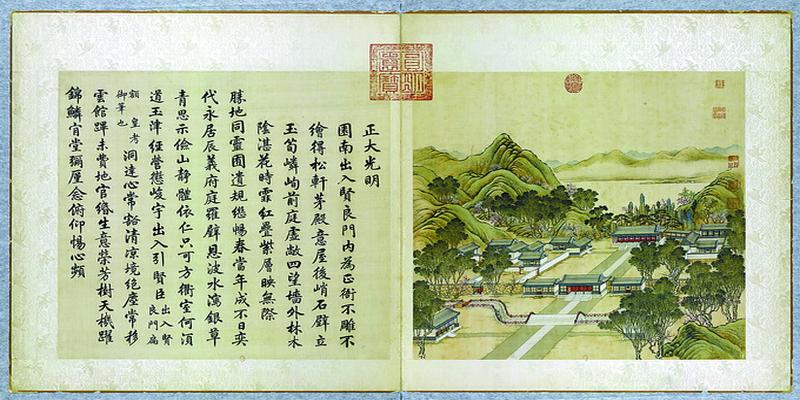 正大光明
園南出入賢良門内為正衙不雕不
繪得松軒茅殿意屋後峭石壁立
玉筍嶙峋前庭虛敞四望墻外林木
陰湛花時霏紅疊紫層映無際
勝地同靈囿遺規繼暢春當年成不日奕
代永居辰義府庭羅壁恩波水瀉銀草
青思示儉山靜體依仁只可方衢室何須
道玉津經營懲峻宇出入引賢臣出入賢良門扁
額皇考御筆也洞達心常豁清涼境絶塵常移
雲館蹕未費地官緡生意榮芳樹天機躍
錦鱗肯堂彌厪念俯仰惕心頻